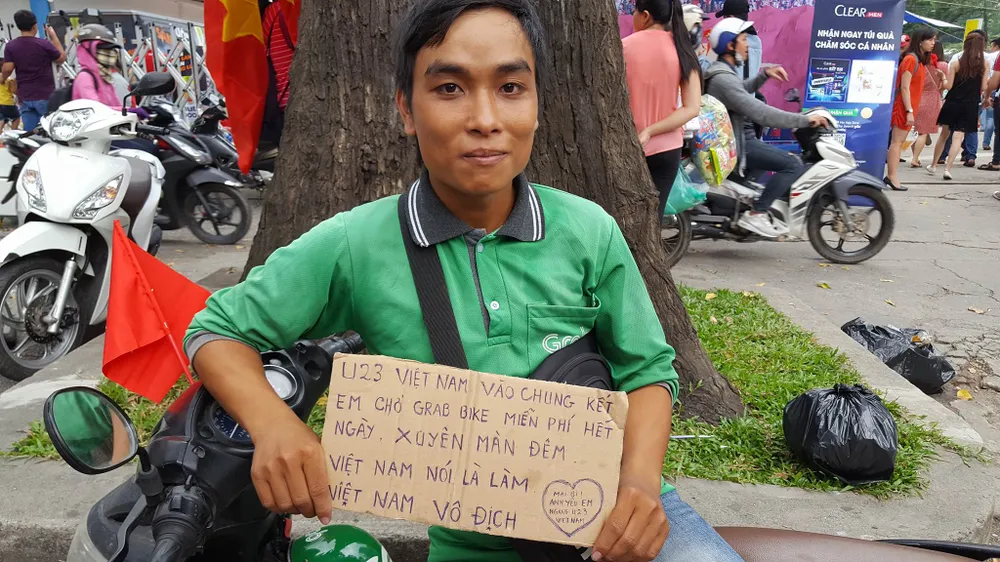 CLEAR MEN
NHẬN NGAY TÚI QUÀ
CHĂM SÓC CÁ NHÂN
Grab
U23 VIỆT NAM VÀO CHUNG KẾT
EM CHỞ GRAB BIKE MIỄN PHÍ HẾT
NGÀY. XUYÊN MÀN ĐÊM.
VIỆT NAM NÓI LÀ LÀM
VIỆT NAM VÔ ĐỊCH
ANH YÊU EM
U23
VIỆT NAM